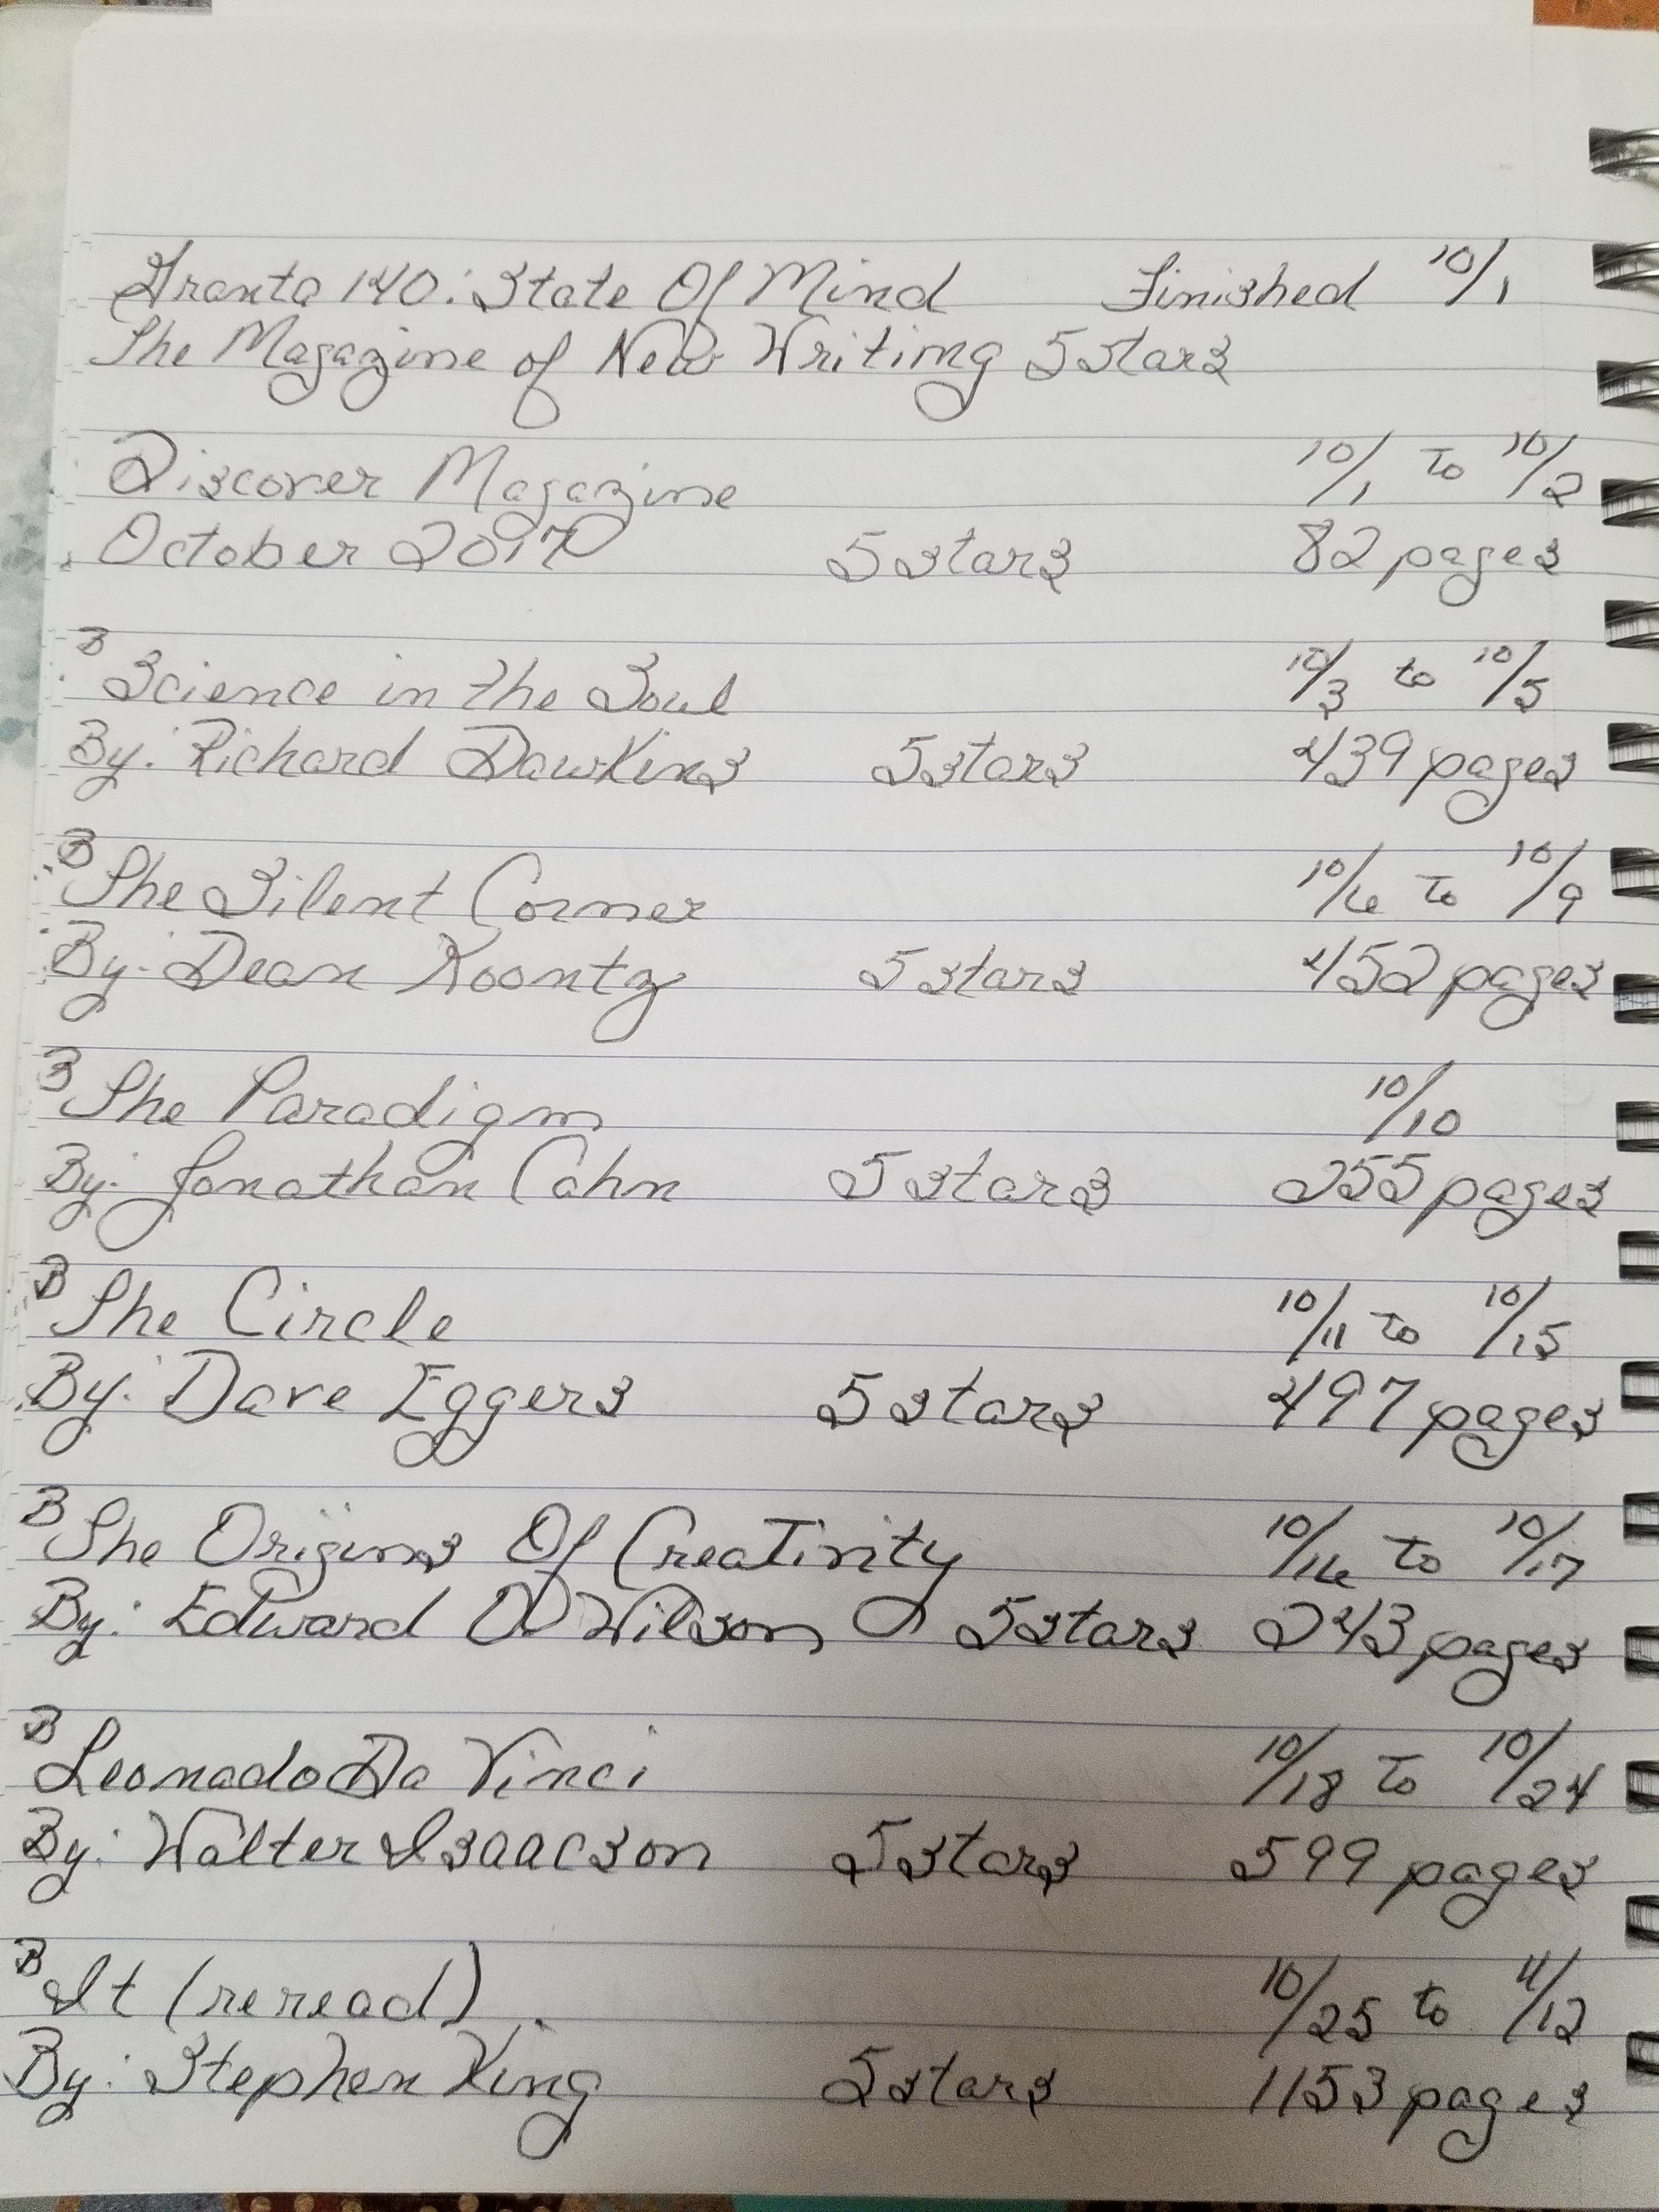 Granta 140: State Of Mind Finished 10/1
The Magazine of New Writing 5 stars
Discover Magazine 10/1 to 10/2
October 2017 5 stars 82 pages
B Science in the Soul 10/3 to 10/5
By: Richard Dawkins 5 stars 439 pages
B The Silent Corner 10/6 to 10/9
By: Dean Koontz 5 stars 452 pages
B The Paradigm 10/10
By: Jonathan Cahn 5 stars 255 pages
B The Circle 10/11 to 10/15
By: Dave Eggers 5 stars 497 pages
B The Origins Of Creativity 10/16 to 10/17
By: Edward O Wilson 5 stars 243 pages
B Leonado Da Vinci 10/18 to 10/24
By: Walter Isaacson 5 stars 599 pages
B It (reread) 10/25 to 11/12
By: Stephen King 5 stars 1153 pages